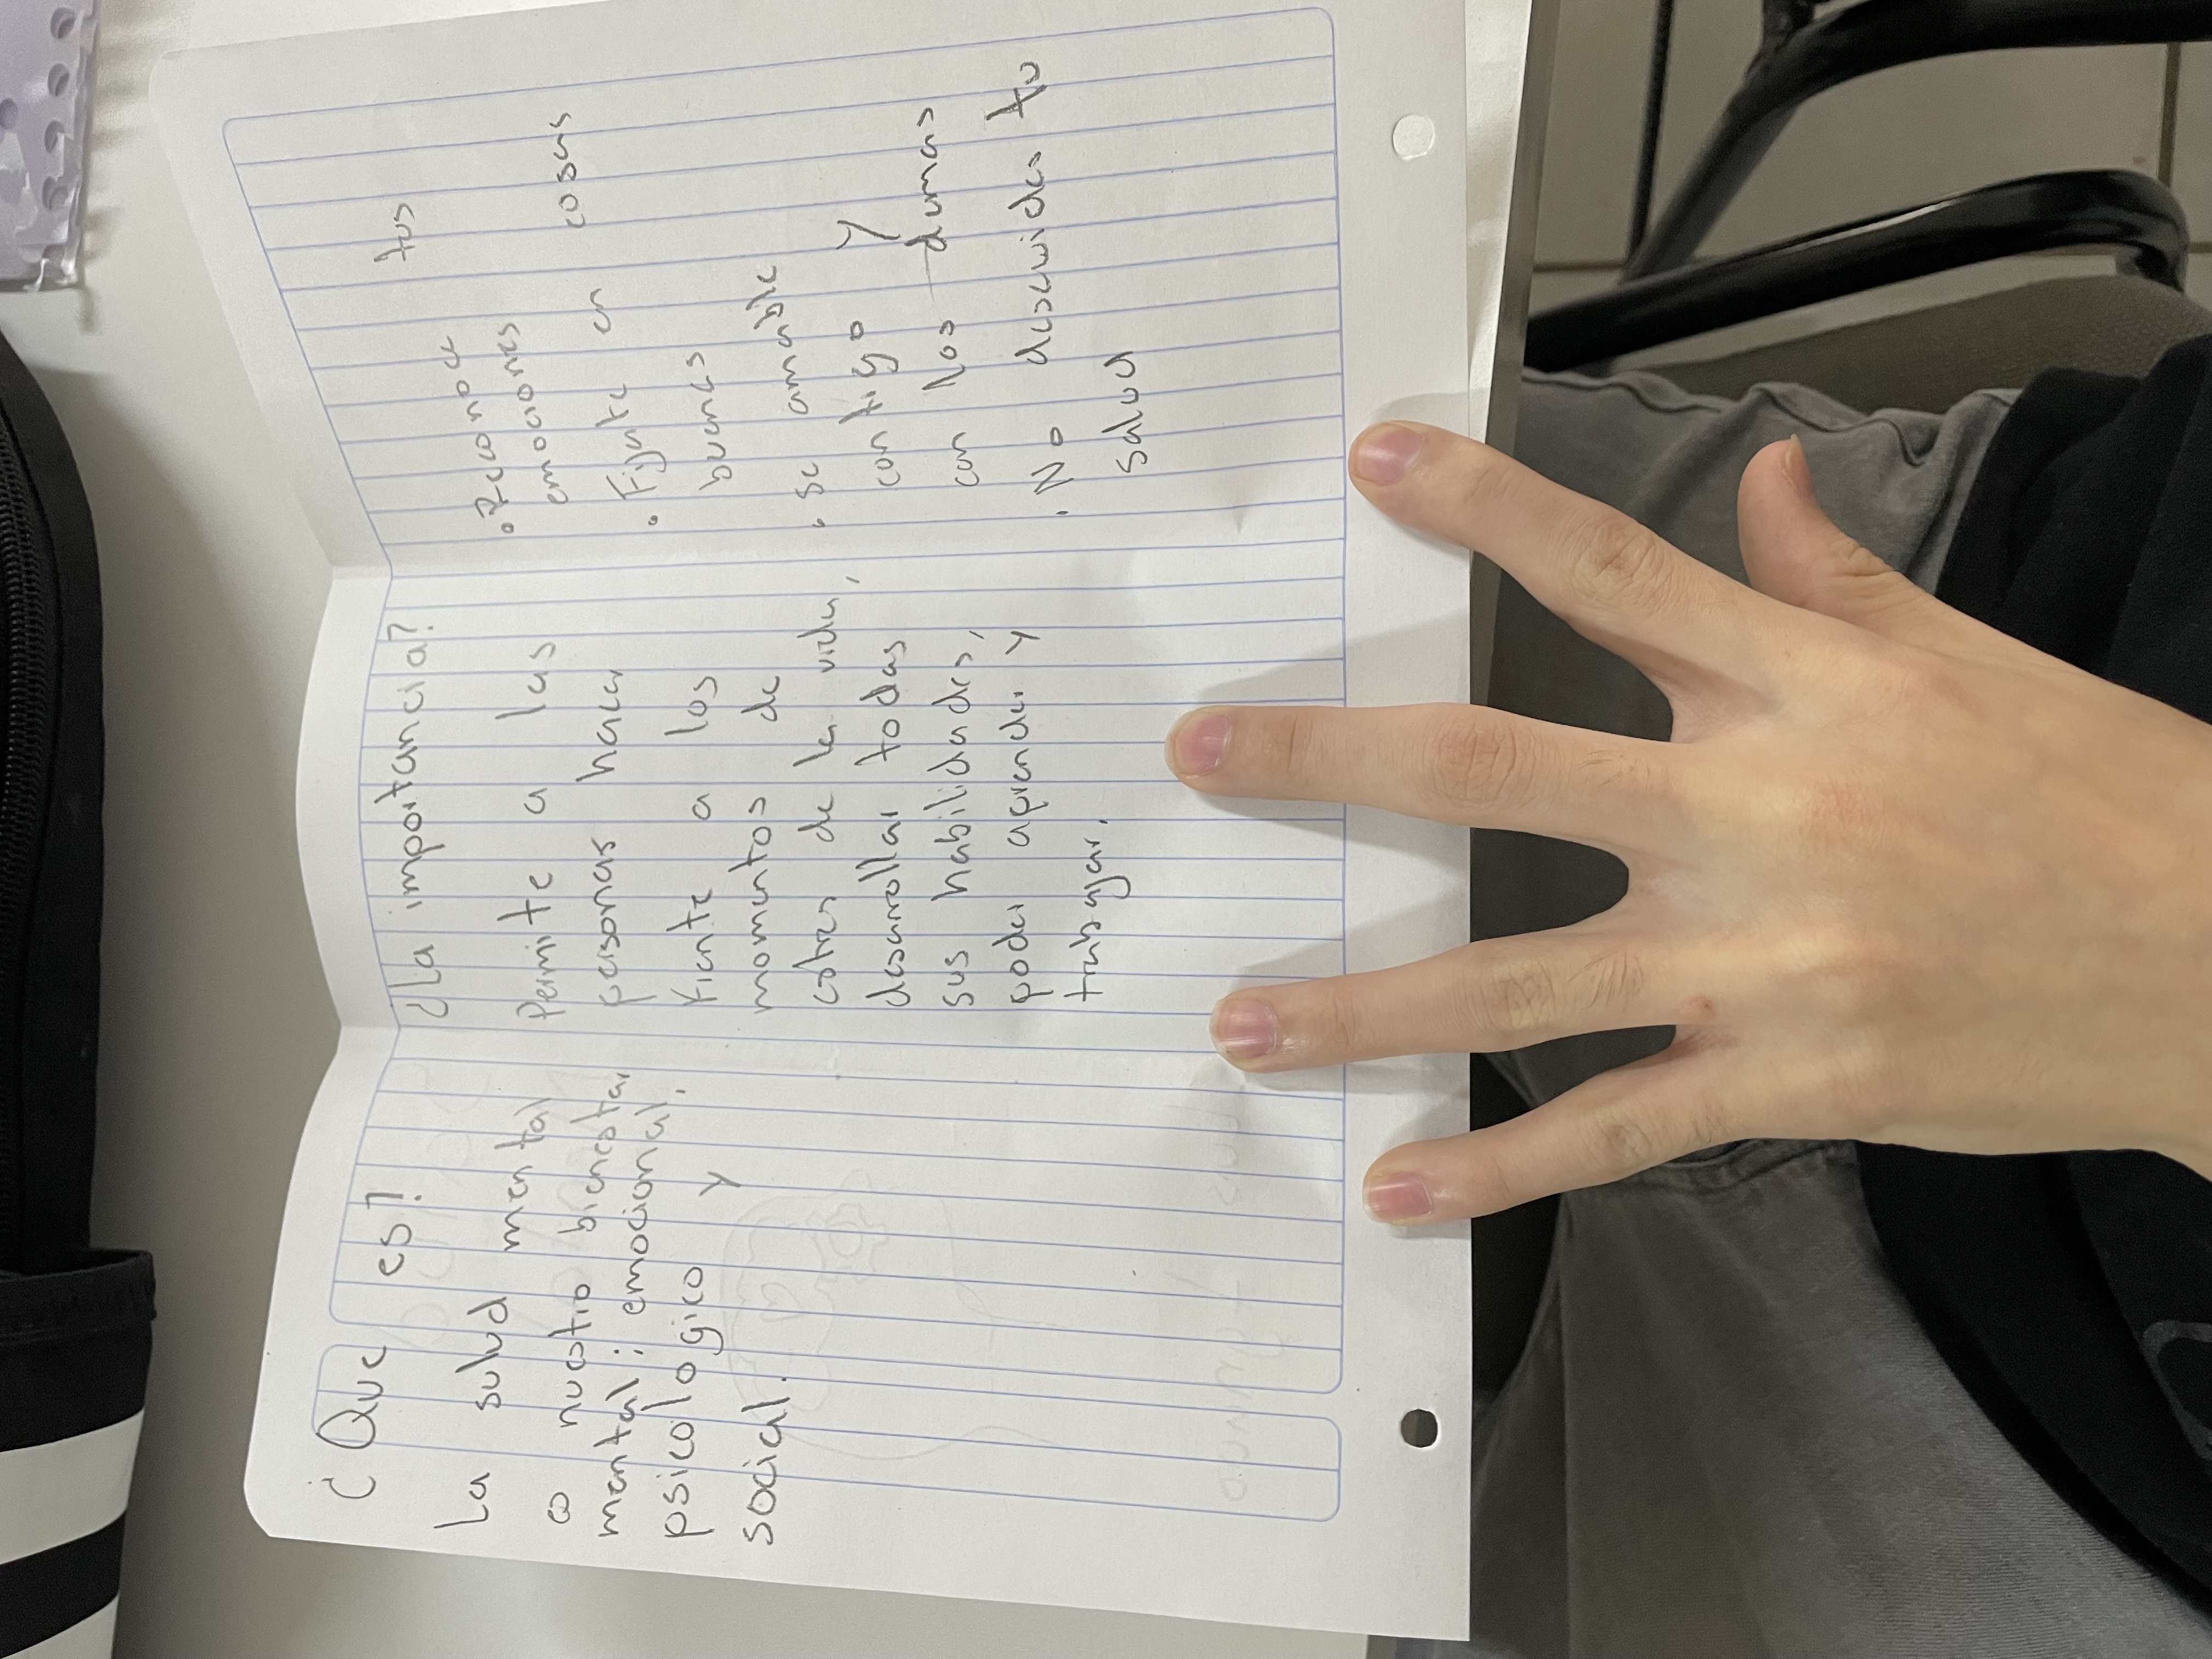 ¿ Que es?
La salud mental
es nuestro bienestar
mental; emocional,
psicologico y
social.
¿La importancia?
Permite a las
personas hacer
frente a los
momentos de
estres de la vida,
desarrollar todas
sus habilidades,
poder aprender y
trabajar.
• Reconoce tus
emociones
• Fijate en cosas
buenas
• Se amable
contigo y
con los demas
• No descuides tu
salud